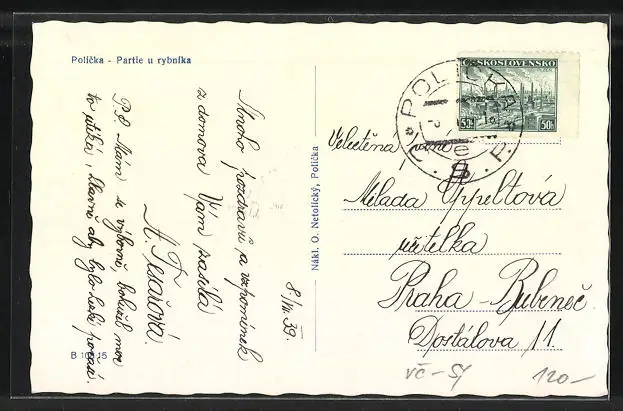 Polička - Partie u rybníka
Mnoho pozdravů a vzpomínek
z domova Vám zasílá
A. Tesařová.
8/VII. 39.
P.S. Mám se výborně, bohužel moc
to utíká, hlavně aby bylo hezké počasí.
B 10 15
Nákl. O. Netolický, Polička
ČESKOSLOVENSKO
50h
POLIČKA
Velectěná paní
Milada Appeltová
učitelka
Praha - Bubeneč.
Dostálova 11.
VČ - SY
120-